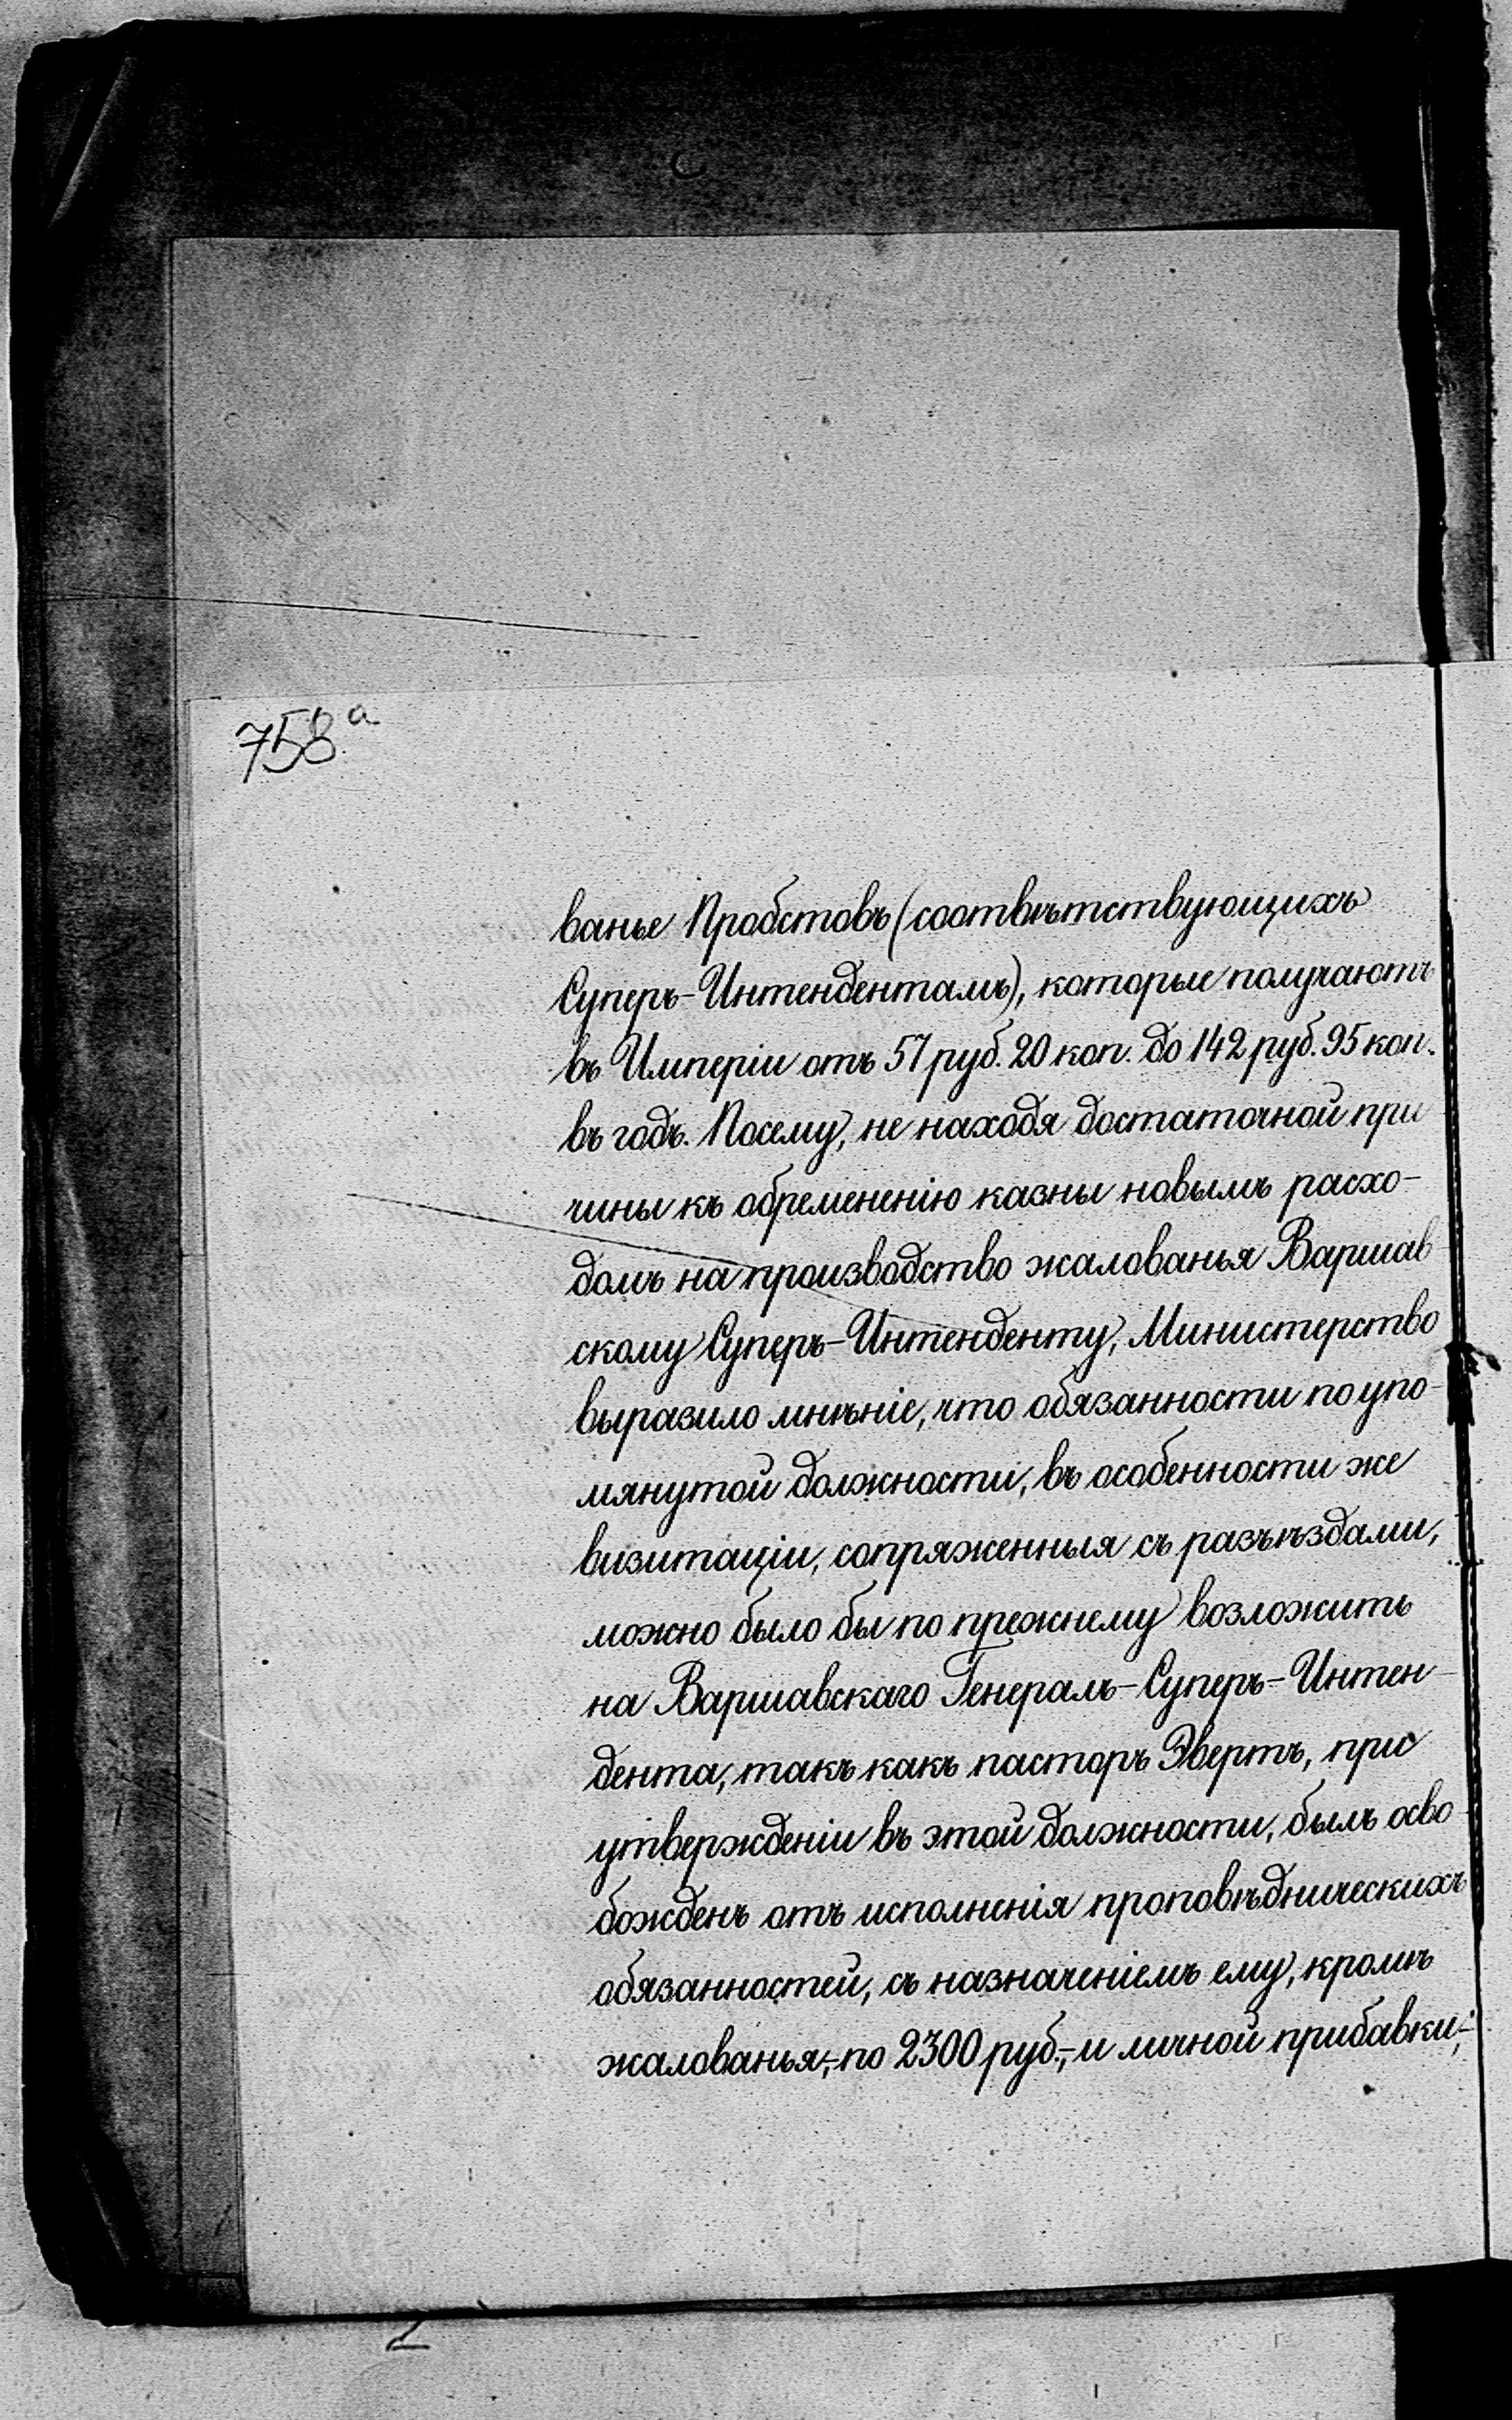 758а
ванье Пробстовъ (соотвѣтствующихъ
Суперъ-Интендентамъ), которые получаютъ
въ Имперіи отъ 57 руб. 20 коп. до 142 руб. 95 коп.
въ годъ. Посему, не находя достаточной при
чины къ обремененію казны новымъ расхо-
домъ на производство жалованья Варшав-
скому Суперъ-Интенденту, Министерство
выразило мнѣніе, что обязанности по упо-
мянутой должности, въ особенности же
визитаціи, сопряженныя съ разъѣздами,
можно было бы по прежнему возложить
на Варшавскаго Генералъ-Суперъ-Интен-
дента, такъ какъ пасторъ Эвертъ, при
утвержденіи въ этой должности, былъ осво-
божденъ отъ исполненія проповѣдническихъ
обязанностей, съ назначеніемъ ему, кромѣ
жалованья,-по 2300 руб.,-и личной прибавки,-